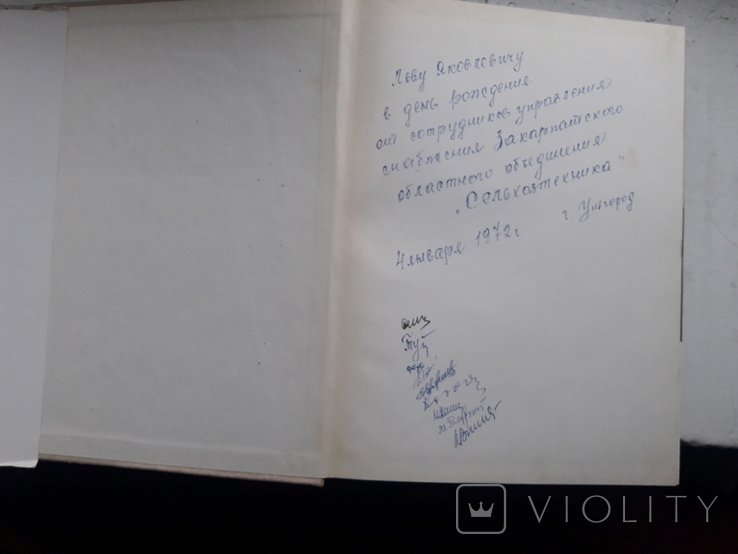 Льву Яковлевичу
в день рождения
от сотрудников управления
снабжения Закарпатского
областного объединения
"Сельхозтехника"
4 января 1972 г
г. Ужгород
VIOLITY